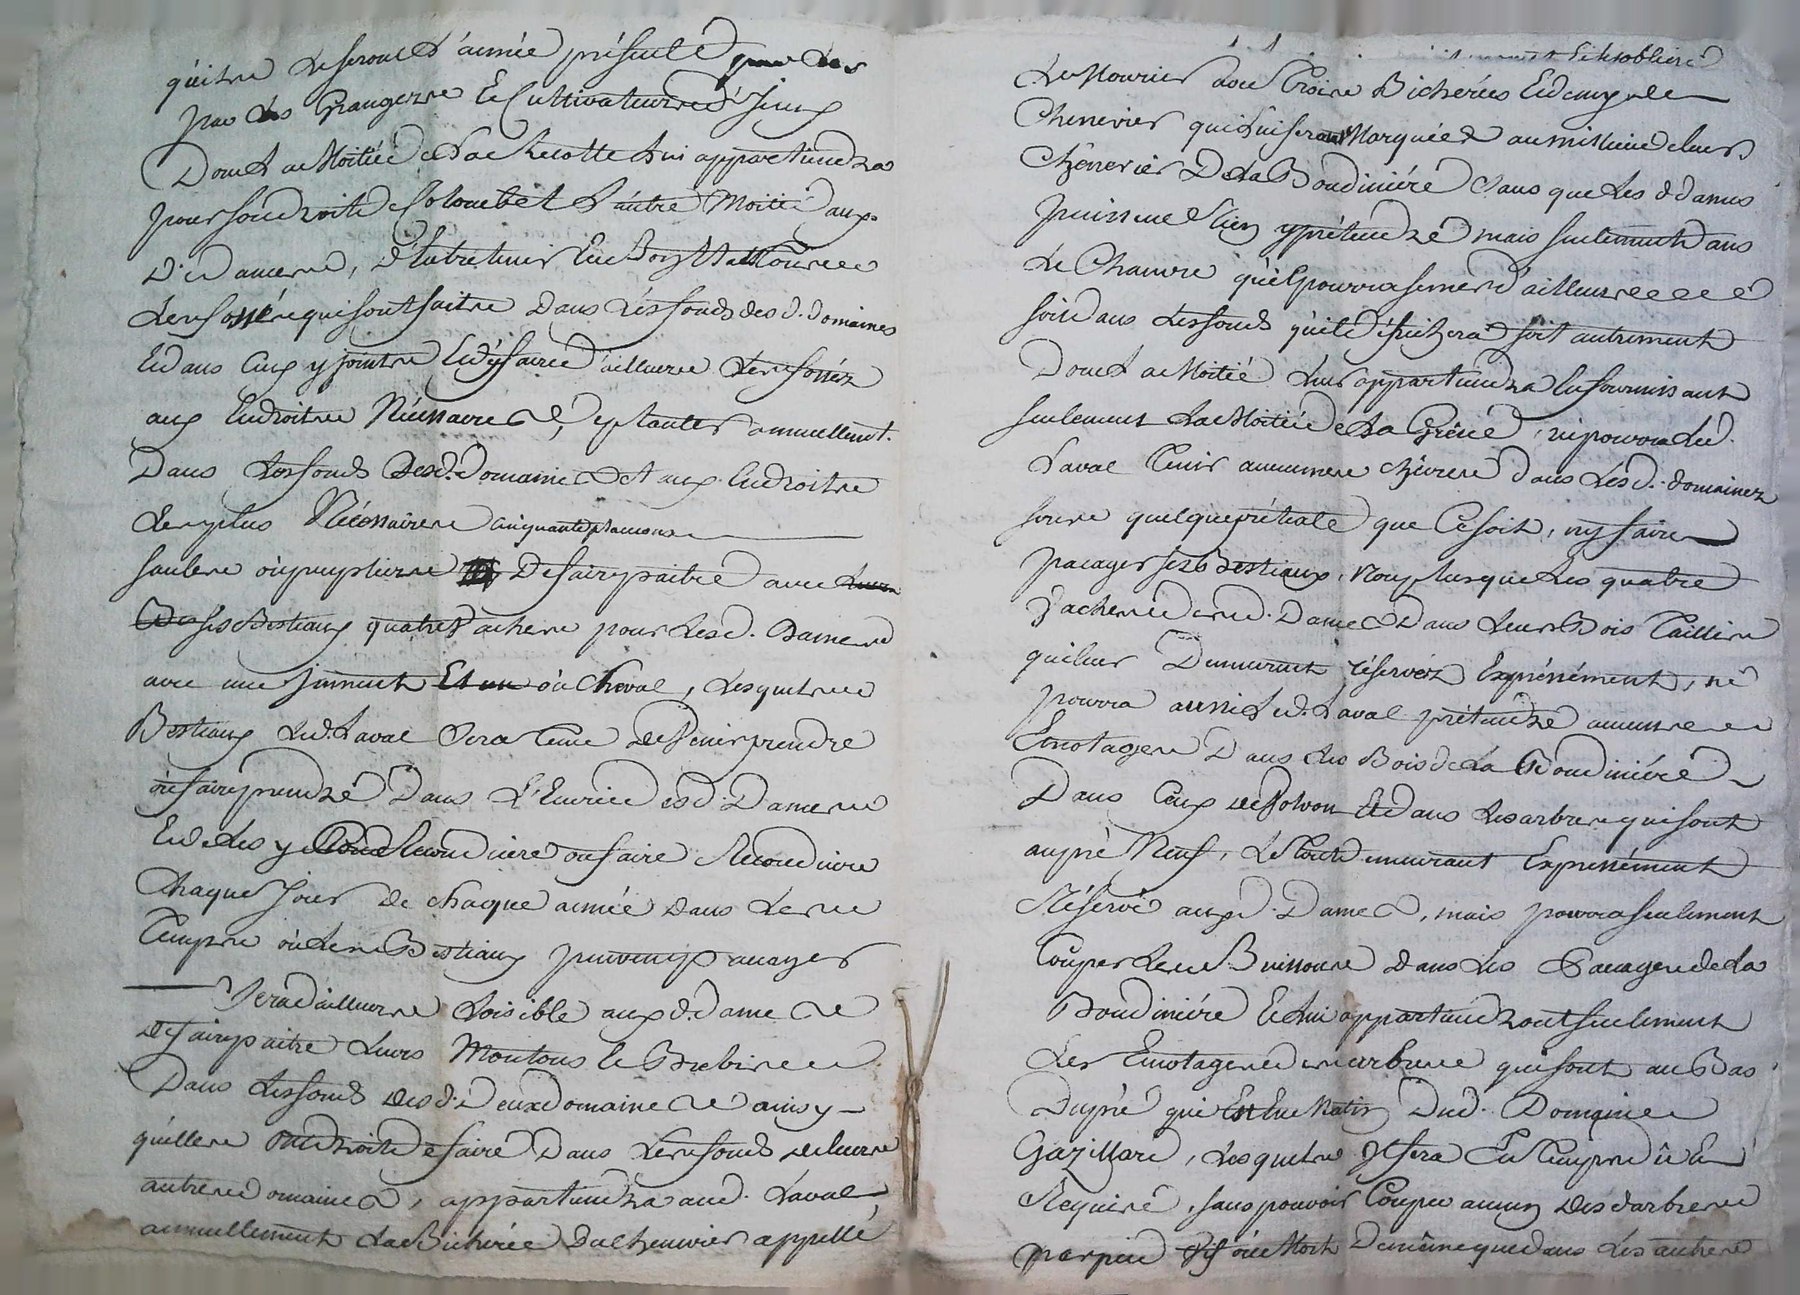 qu'itre Le seront L'année présente
par Les Grangers et Cultivateurs d'Iceux
Dont La Moitié de La Recolte Lui appartiendra
pour son droit de Colon et L'autre Moitié aux
d.es dames, D'Entretenir En Bon
Les fossés qui sont faits Dans Les fonds des d. domaines
Et dans Ceux y joints Et d'y faire d'ailleurs Les fossés
aux Endroits Nécessaires, d'y planter annuellem.t
Dans Les fonds Desd. Domaines Et aux Endroits
Les plus Nécéssaires cinquante plançons
saules ou peupliers De faire paitre avec
ses Bestiaux quatre Vaches pour Lesd. Dames
avec une jument ou cheval, Lesquels
Bestiaux Led. Laval Sera Tenu de Venir prendre
ou faire prendre Dans L'Ecurie desd. Dames
Et de Les y Reconduire ou faire Reconduire
Chaque Jour de chaque année dans Les
Temps où Les Bestiaux peuvent pacager
Sera d'ailleurs Loisible auxd. dames
de faire paitre Leurs Moutons et Brebis
Dans Les fonds desd. Deux Domaines ainsy
qu'elles ont droit de faire Dans Les fonds de leurs
autres domaines, appartiendra aud. Laval
annuellement La Bicherée Du chenevier appellé
Le Mourier avec Trois Bicherées Et demy de
Chenevier qui Lui seront Marquées au milieu de leur
Chenevier De La Boudinière Sans que Les d. dames
puissent Rien y prétendre mais seulement dans
Le Chanvre qu'il pourra semer d'ailleurs
soit dans Les fonds qu'il défrichera soit autrement
Dont La Moitié Leur appartiendra En fournissant
seulement La Moitié de La Graine, ne pourra Led.
Laval Tenir aucunes chèvres dans Lesd. domaines
sous quelque prétexte que Ce soit, ny faire
pacager ses Bestiaux, Non plus que Les quatre
Vaches desd. Dames Dans Leurs Bois Taillis
qui leur Demeurent réservés Expressément, ne
pourra aussi Led. Laval prétendre aucuns
Emotages Dans Les Bois de La Boudinière
Dans Ceux de Et dans Les arbres qui sont
au pré Neuf, Le Tout demeurant Expressément
Réservé auxd. Dames, mais pourra seulement
Couper Les Buissons Dans Les Pacages de La
Boudinière Et Lui appartiendront seulement
Les Emotages des arbres qui sont au Bas
Du pré qui Est En Dud. Domaine
Gazillard, Lesquels Il fera En Temps dû Et
Requis, sans pouvoir Couper aucun Desd. arbres
par pied Vif ou Mort De même que dans Les autres